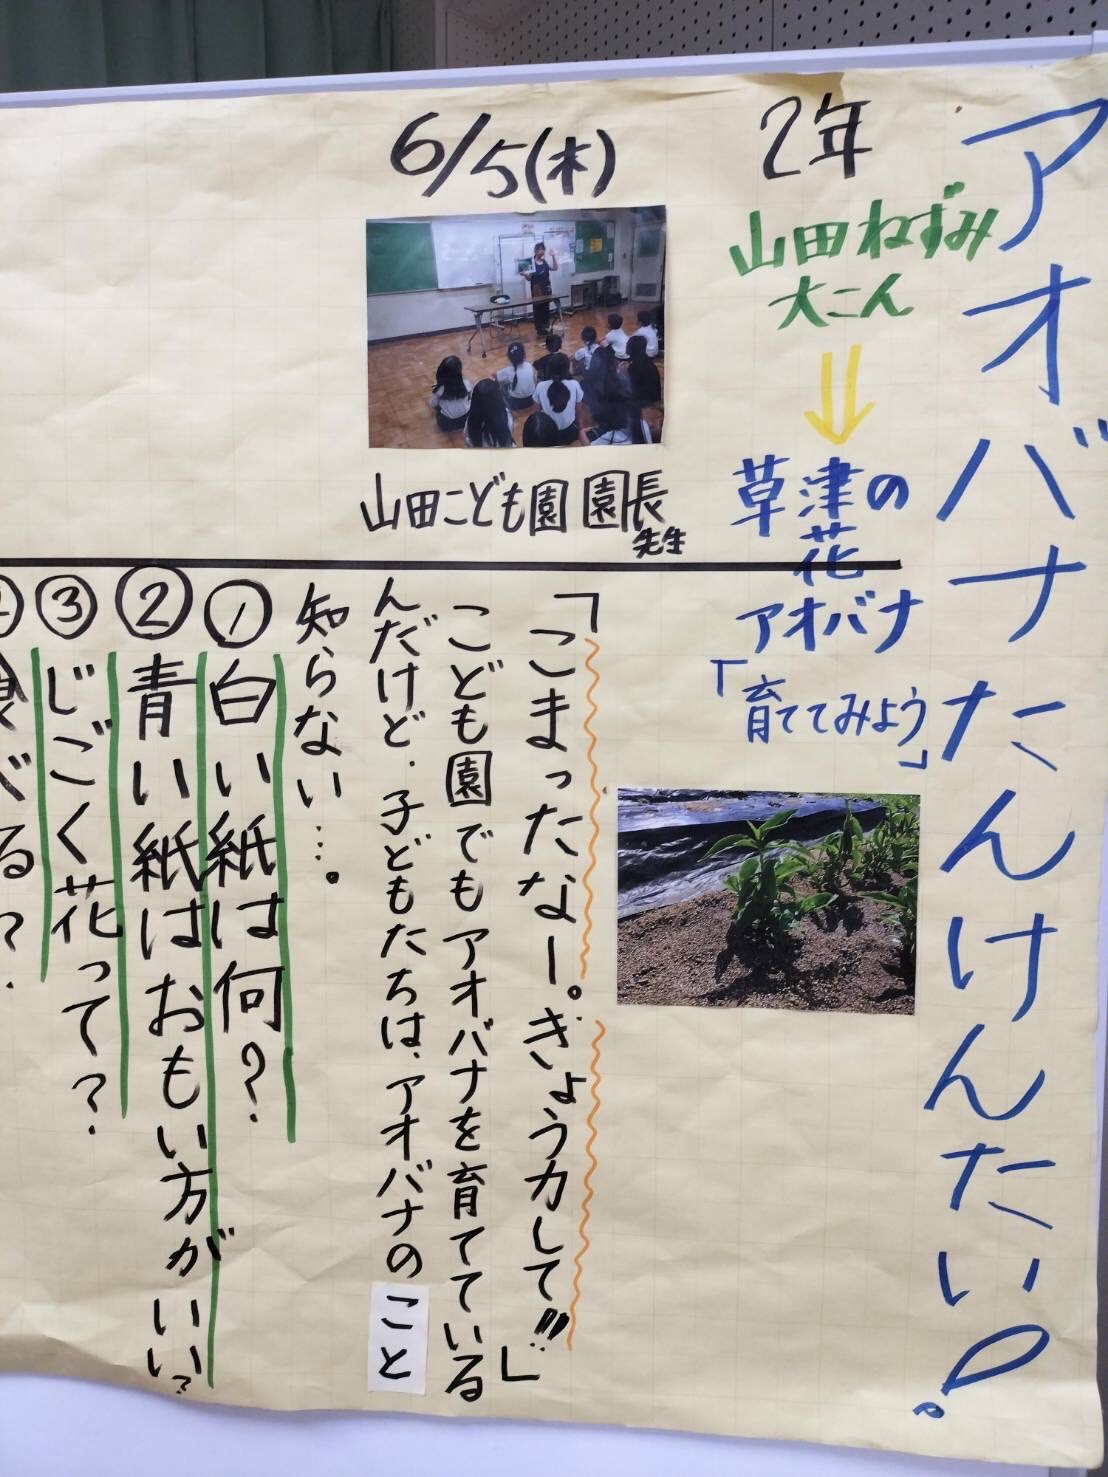 アオバナたんけんたい!
2年
山田ねずみ
大こん
草津の
花
アオバナ
「育ててみよう」
6/5(木)
山田こども園 園長
先生
「こまったなー。きょう力して!!」
こども園でもアオバナを育てている
んだけど、子どもたちは、アオバナのこと
知らない…。
①白い紙は何?
②青い紙はおもい方がいい?
③じごく花って?
べる?